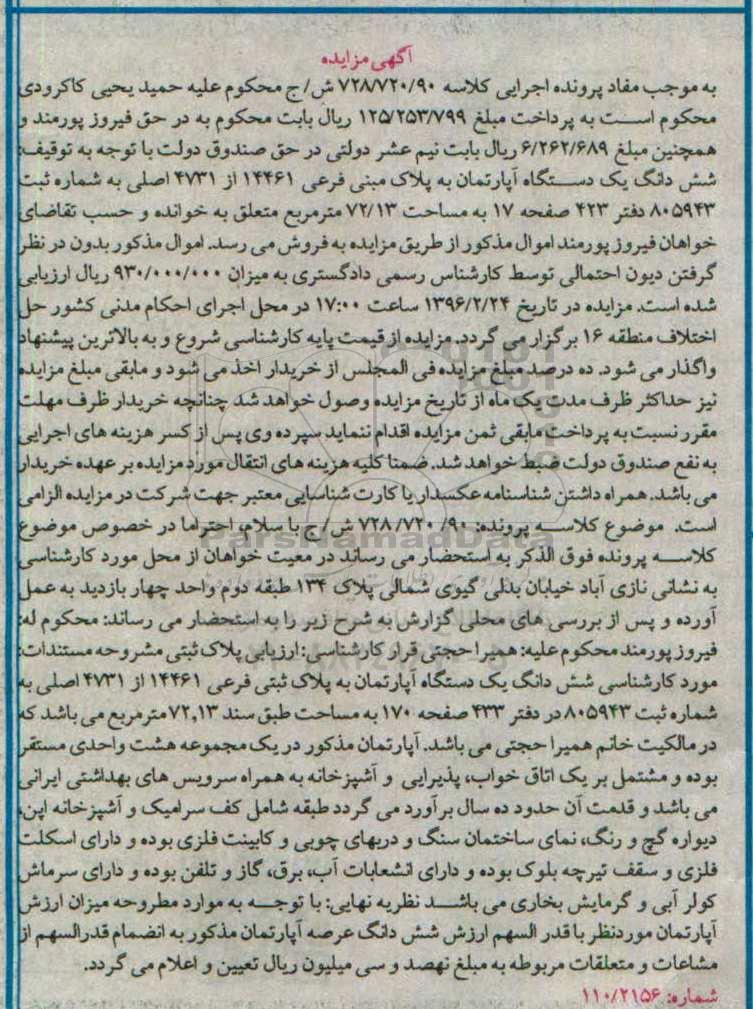 آگهی مزایده
به موجب مفاد پرونده اجرایی کلاسه ۷۲۸/۷۲۰/۹۰ ش/ ج محکوم علیه حمید یحیی کاکرودی
محکوم است به پرداخت مبلغ ۱۲۵/۲۵۳/۷۹۹ ریال بابت محکوم به در حق فیروز پورمند و
همچنین مبلغ ۶/۲۶۲/۶۸۹ ریال بابت نیم عشر دولتی در حق صندوق دولت با توجه به توقیف:
شش دانگ یک دستگاه آپارتمان به پلاک مبنی فرعی ۱۴۴۶۱ از ۴۷۳۱ اصلی به شماره ثبت
۸۰۵۹۴۳ دفتر ۴۲۳ صفحه ۱۷ به مساحت ۷۲/۱۳ مترمربع متعلق به خوانده و حسب تقاضای
خواهان فیروز پورمند اموال مذکور از طریق مزایده به فروش می رسد. اموال مذکور بدون در نظر
گرفتن دیون احتمالی توسط کارشناس رسمی دادگستری به میزان ۹۳۰/۰۰۰/۰۰۰ ریال ارزیابی
شده است. مزایده در تاریخ ۱۳۹۶/۲/۲۴ ساعت ۱۷:۰۰ در محل اجرای احکام مدنی کشور حل
اختلاف منطقه ۱۶ برگزار می گردد. مزایده از قیمت پایه کارشناسی شروع و به بالاترین پیشنهاد
واگذار می شود. ده درصد مبلغ مزایده فی المجلس از خریدار اخذ می شود و مابقی مبلغ مزایده
نیز حداکثر ظرف مدت یک ماه از تاریخ مزایده وصول خواهد شد چنانچه خریدار ظرف مهلت
مقرر نسبت به پرداخت مابقی ثمن مزایده اقدام ننماید سپرده وی پس از کسر هزینه های اجرایی
به نفع صندوق دولت ضبط خواهد شد. ضمنا کلیه هزینه های انتقال مورد مزایده بر عهده خریدار
می باشد. همراه داشتن شناسنامه عکسدار یا کارت شناسایی معتبر جهت شرکت در مزایده الزامی
است. موضوع کلاسه پرونده: ۹۰/ ۷۲۸/۷۲۰ ش/ ج با سلام، احتراما در خصوص موضوع
کلاسه پرونده فوق الذکر به استحضار می رساند در معیت خواهان از محل مورد کارشناسی
به نشانی نازی آباد خیابان بدلی گیوی شمالی پلاک ۱۳۴ طبقه دوم واحد چهار بازدید به عمل
آورده و پس از بررسی های محلی گزارش به شرح زیر را به استحضار می رساند: محکوم له:
فیروز پورمند محکوم علیه: همیرا حجتی قرار کارشناسی: ارزیابی پلاک ثبتی مشروحه مستندات:
مورد کارشناسی شش دانگ یک دستگاه آپارتمان به پلاک ثبتی فرعی ۱۴۴۶۱ از ۴۷۳۱ اصلی به
شماره ثبت ۸۰۵۹۴۳ در دفتر ۴۳۳ صفحه ۱۷۰ به مساحت طبق سند ۷۲,۱۳ مترمربع می باشد که
در مالکیت خانم همیرا حجتی می باشد. آپارتمان مذکور در یک مجموعه هشت واحدی مستقر
بوده و مشتمل بر یک اتاق خواب، پذیرایی و آشپزخانه به همراه سرویس های بهداشتی ایرانی
می باشد و قدمت آن حدود ده سال برآورد می گردد طبقه شامل کف سرامیک و آشپزخانه اپن،
دیواره گچ و رنگ، نمای ساختمان سنگ و دربهای چوبی و کابینت فلزی بوده و دارای اسکلت
فلزی و سقف تیرچه بلوک بوده و دارای انشعابات آب، برق، گاز و تلفن بوده و دارای سرماش
کولر آبی و گرمایش بخاری می باشد نظریه نهایی: با توجه به موارد مطروحه میزان ارزش
آپارتمان موردنظر با قدر السهم ارزش شش دانگ عرصه آپارتمان مذکور به انضمام قدرالسهم از
مشاعات و متعلقات مربوطه به مبلغ نهصد و سی میلیون ریال تعیین و اعلام می گردد.
شماره: ۱۱۰/۲۱۵۶
ParsNamadData